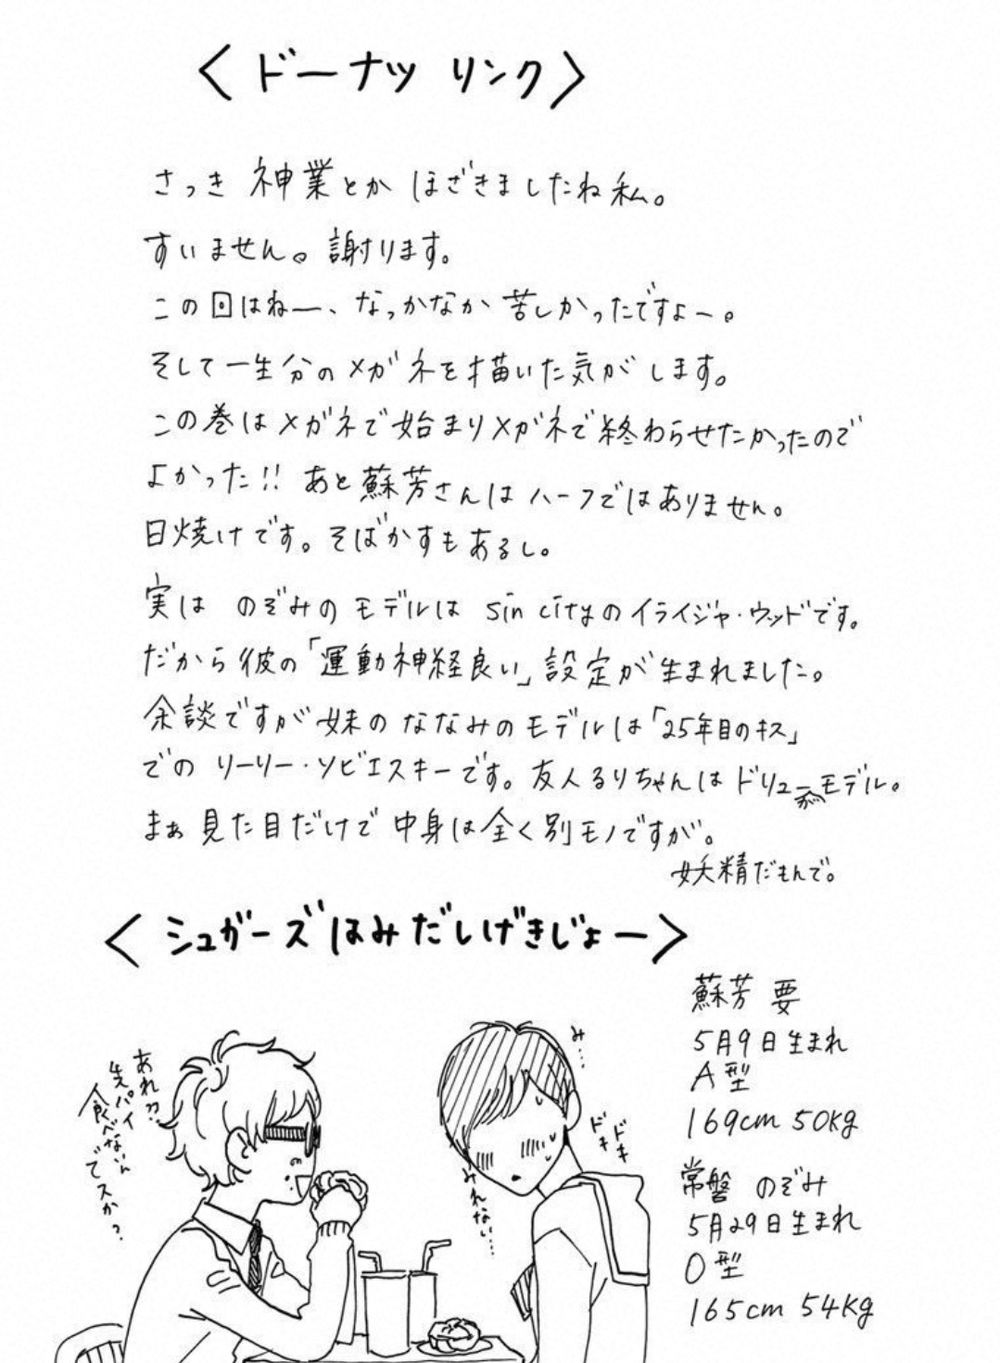 <ドーナツ リンク>
さっき 神業とか ほざきましたね私。
すいません。謝ります。
この回はねー、なっかなか 苦しかったですよー。
そして一生分のメガネを描いた気がします。
この巻はメガネで始まりメガネで終わらせたかったので
よかった!! あと蘇芳さんはハーフではありません。
日焼けです。そばかすもあるし。
実は のぞみのモデルは sin cityのイライジャ・ウッドです。
だから彼の「運動神経良い」設定が生まれました。
余談ですが妹のななみのモデルは「25年目のキス」
での リーリー・ソビエスキーです。友人るりちゃんは ドリューがモデル。
まぁ見た目だけで中身は全く別モノですが。
妖精だもんで。
<シュガーズはみだしげきじょー>
蘇芳 要
5月9日生まれ
A型
169cm 50kg
常磐 のぞみ
5月29日生まれ
O型
165cm 54kg
み…
ドキ
ドキ
みれない…
あれ??
先パイ
食べないん
でスか?